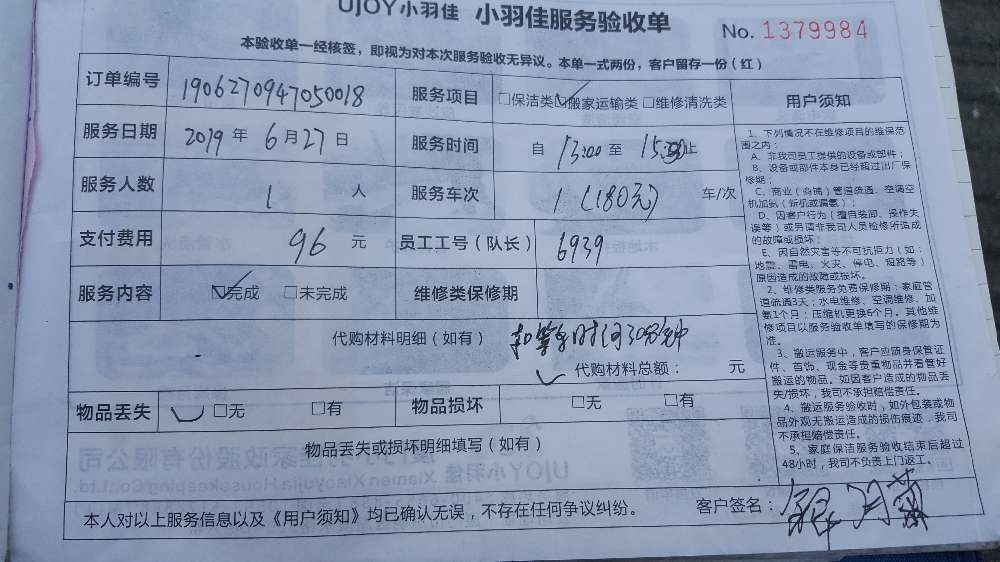 UJOY小羽佳 小羽佳服务验收单
No. 1379984
本验收单一经核签，即视为对本次服务验收无异议。本单一式两份，客户留存一份（红）
订单编号 1906270947050018 服务项目 □保洁类 ☑搬家运输类 □维修清洗类
服务日期 2019 年 6 月 27 日 服务时间 自 13:00 至 15:30 止
服务人数 1 人 服务车次 1（180元） 车/次
支付费用 96 元 员工工号（队长） 6939
服务内容 ☑完成 □未完成 维修类保修期
代购材料明细（如有） 扣等车时间30分钟
代购材料总额： 元
物品丢失 □无 □有 物品损坏 □无 □有
物品丢失或损坏明细填写（如有）
本人对以上服务信息以及《用户须知》均已确认无误，不存在任何争议纠纷。 客户签名：
用户须知
1、下列情况不在维修项目的维保范
围之内：
A、非我司员工提供的设备或部件；
B、设备或部件本身已经超过出厂保
修期；
C、商业（商铺）管道疏通、空调空
机加氨（新机或漏氨）；
D、因客户行为（擅自装卸、操作失
误等）或另请非我司人员检修所造成
的故障或损坏；
E、因自然灾害等不可抗拒力（如：
地震、雷电、火灾、停电、短路等）
原因造成的故障或损坏。
2、维修类服务免费保修期：家庭管
道疏通3天；水电维修、空调维修、加
氨1个月；压缩机更换6个月。其他维
修项目以服务验收单填写的保修期为
准。
3、搬运服务中，客户应随身保管证
件、首饰、现金等贵重物品并看管好
搬运的物品。如因客户造成的物品丢
失/损坏，我司不承担赔偿责任。
4、搬运服务验收时，如外包装或物
品外观无搬运造成的损伤痕迹，我司
不承担赔偿责任。
5、家庭保洁服务验收结束后超过
48小时，我司不负责上门返工。